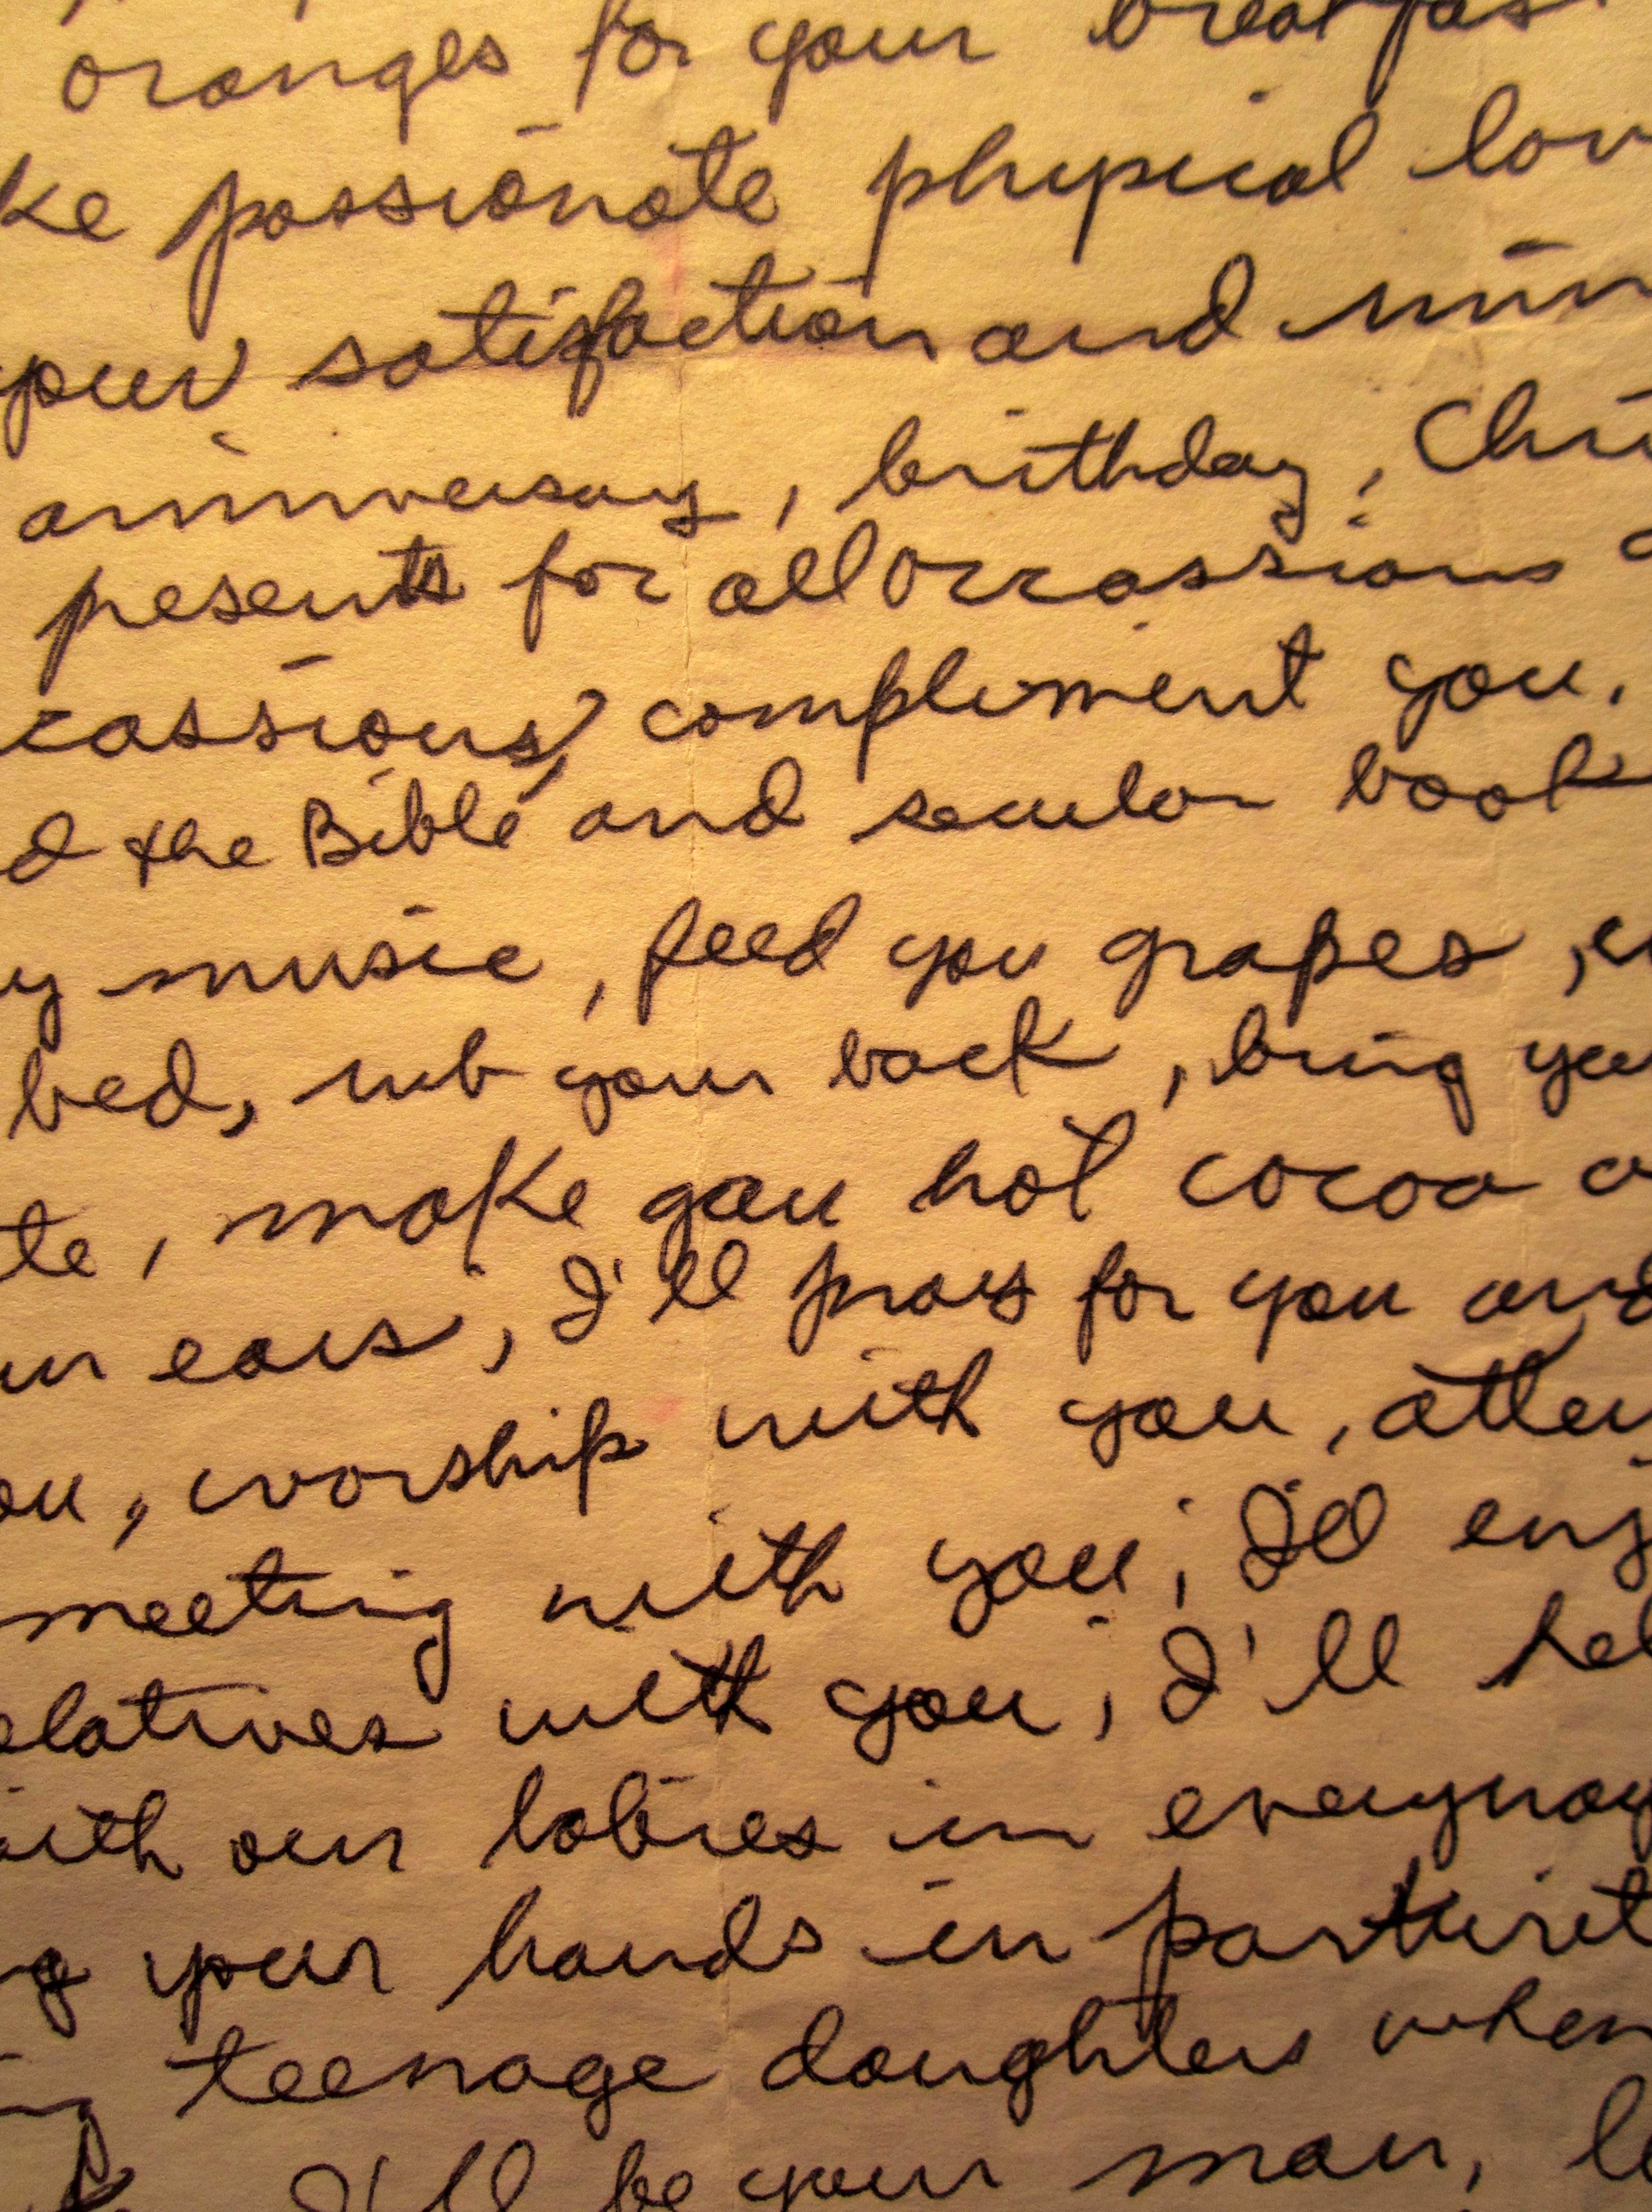 oranges for your breakfas
ke passionate physical lov
your satisfaction and min
anniversary, birthday, Chri
pesents for all occassions
cassions, compliment you,
d the Bible and secular book
y music, feed you grapes,
bed, rub your back, bring you
te, make you hot cocoa a
ur ears, I'll pray for you and
ou, worship with you, atten
meeting with you, I'll enj
elatives with you, I'll hel
ith our babies in everyway
g your hands in parturit
teenage daughters when
I'll be your man, lo